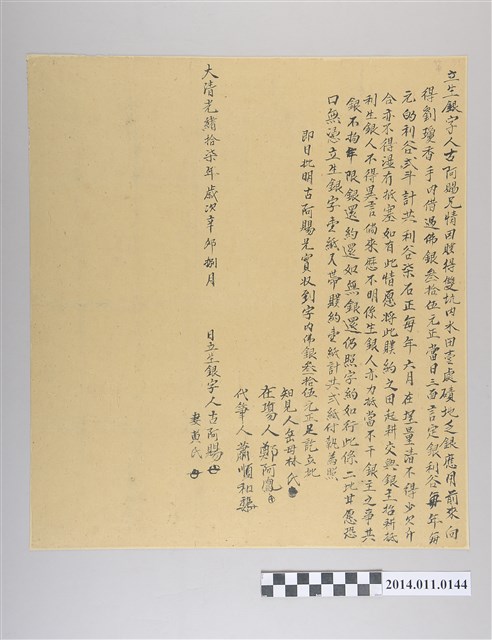 立生銀字人古阿賜兄情因贌得雙坑內水田壹處磧地乏銀應用前來向
得劉瓊香手內借過佛銀叁拾伍元正當日三面言定銀利谷每年每
元的利谷弍斗計共利谷柒石正每年六月在埕量清不得少欠升
合亦不得濕有抵塞如有此情愿將此贌約之田起耕交與銀主招耕抵
利生銀人不得異言倘來歷不明係生銀人亦力抵當不干銀主之事共
銀不拘年限銀還約還如無銀還仍照字約如行此係二比甘愿恐
口無憑立生銀字壹紙又帶贌約壹紙計共弍紙付執為照
即日批明古阿賜兄實收到字內佛銀叁拾伍元正足訖立批
知見人岳母林氏
在塲人鄭阿鳳
代筆人蕭順和
大清光緒拾柒年歲次辛卯捌月 日立生銀字人古阿賜
妻黃氏
2014.011.0144